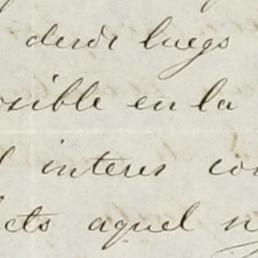 desde luego
osible en la
l interes co
cto aquel n